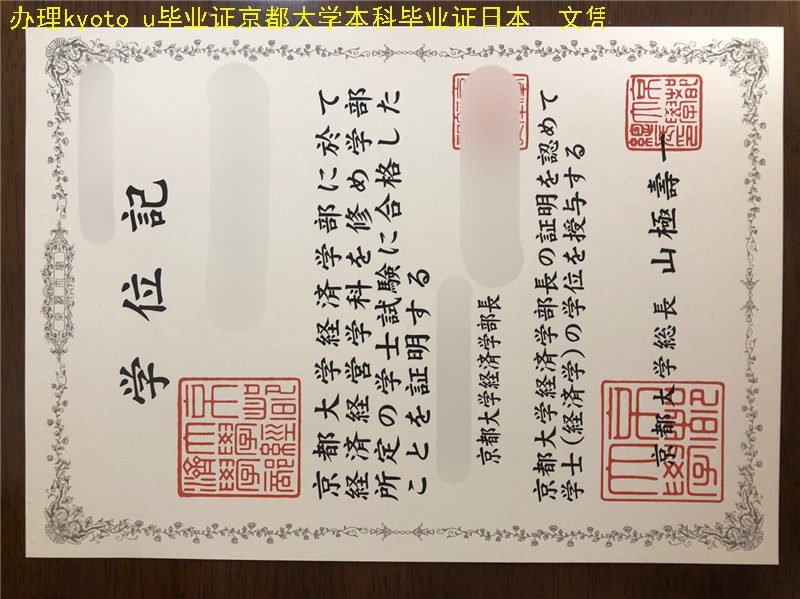 办理kyoto u毕业证京都大学本科毕业证日本 文凭
学位記
京都大学経済学部に於て
経済経営学科を修め学部
所定の学士試験に合格した
ことを証明する
京都大学経済学部長
京都大学経済学部長の証明を認めて
学士(経済学)の学位を授与する
京都大学総長 山極壽一